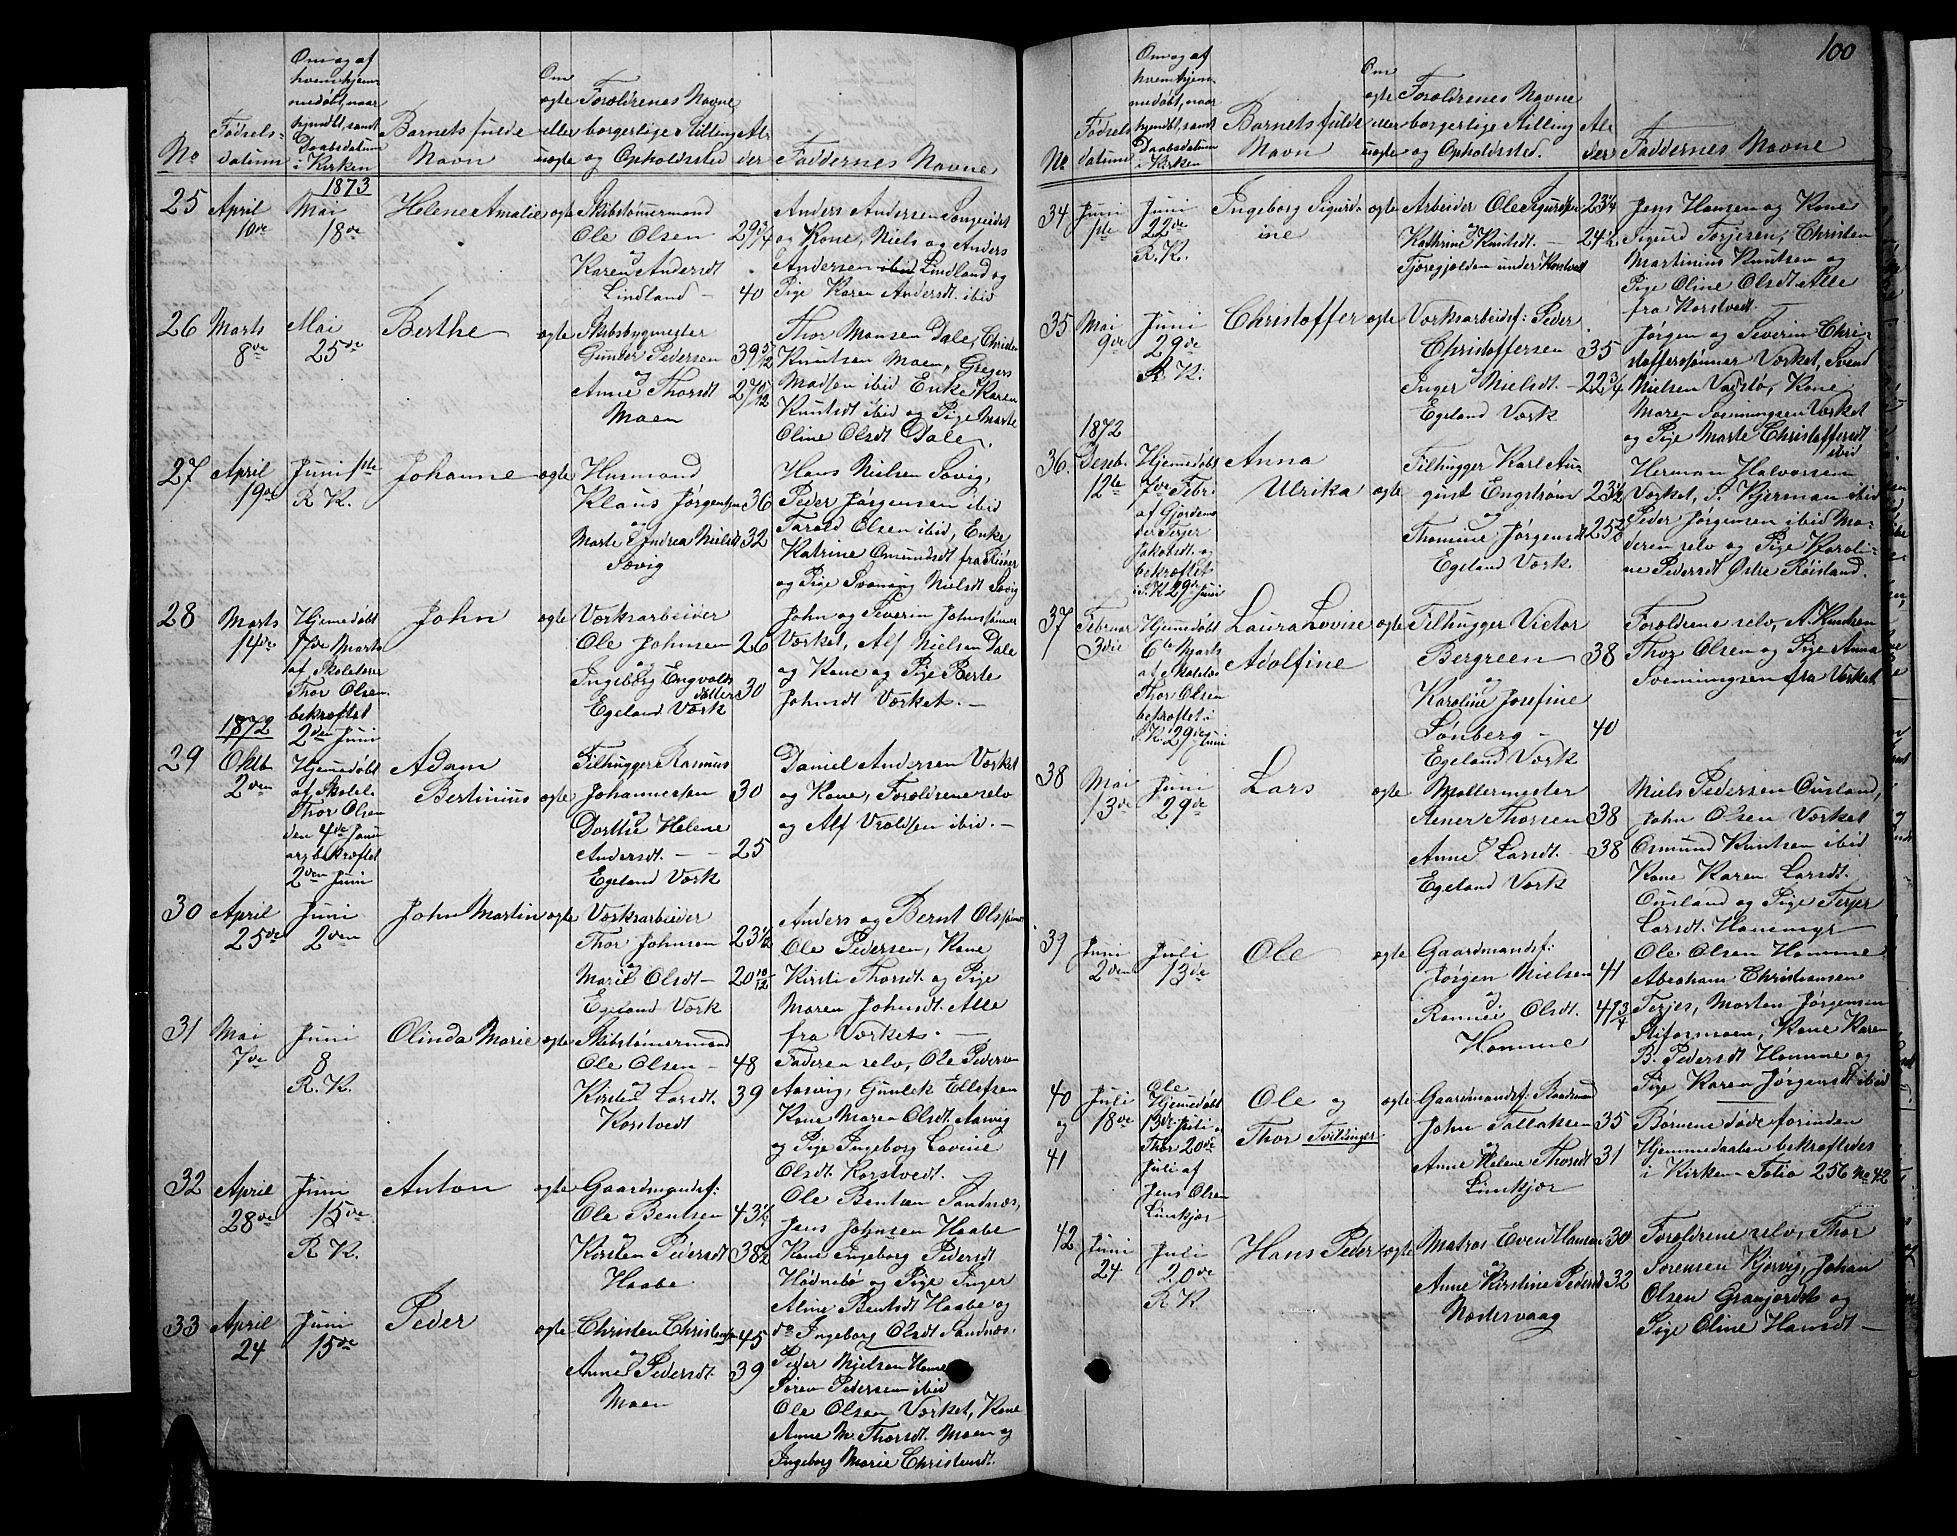 100
No
Fødsels-
datum
Om og af
hvem hjem-
medøbt, naar
hjemdbt, samt
Daabsdatum
i Kirken
Barnets fulde
Navn
Om
ægte
eller
uægte
Forældrenes Navne
borgerlige Stilling
og Opholdssted
Al-
der
Faddernes Navne
1873
25 April
10de
Mai
18de
Helene Amalie ægte
Skibstømmermand
Ole Olsen 29
og
Karen Andersdt
Lindland 40
Anders Andersen
og Kone, Niels og Anders
Andersen ibid Lindland og
Pige Karen Andersdt. ibid
26 Marts
8de
Mai
25de
Berthe ægte
Skibsbygmester
Gunder Pedersen 39 5/12
og
Anne Thorsdt 27
Moen
Thor Monsen Dale, Christen
Knutsen Moen, Gregers
Madsen ibid Enke Karen
Knutsdt ibid og Pige Marte
Oline Olsdt Dale.
27 April
19de
Juni 1ste
R. K.
Johanne ægte
Husmand
Klaus Jørgensen 36
og
Marte Andrea Nielsdt 32
Søvig
Hans Nielsen Søvig,
Peder Jørgensen ibid
Tarald Olsen ibid, Enke
Katrine Omundsdt fra
og Pige Nielsdt Søvig
28 Marts
14de
Hjemedøbt
17de Marts
af Skolelærer
Thor Olsen
bekræftet
2den Juni
John ægte
Værksarbeider
Ole Johnsen 26
og
Ingeborg Engvolds
datter 30
Egeland Værk
John og Severin Johnsønner
Værket, Alf Nielsen Dale
og Kone og Pige Berte
Johnsdt Værket.
1872
29 Oktb.
2den
Hjemedøbt
af Skolel.
Thor Olsen
den 4de Janu
ar, bekræftet
2den Juni
Adam
Bertinius ægte
Filhugger Rasmus
Johannessen 30
og
Dorthe Helene
Andersdt. 25
Egeland Værk
Daniel Andersen Værket
og Kone, Forældrene selv
og Alf Vroldsen ibid.
30 April
25de
Juni
2den
John Martin ægte
Værksarbeider
Thor Johnsen 23 1/2
og
Marie Olsdt 20 10/12
Egeland Værk
Anders og Bernt Olssønner
Ole Pedersen, Kone
Kirsti Thorsdt og Pige
Maren Johnsdt. Alle
fra Værket.
31 Mai
7de
Juni
8
R. K.
Olinda Marie ægte
Skibstømermand
Ole Olsen 48
og
Kirsten Larsdt. 39
Korstvedt
Faderen selv, Ole Pedersen
Aasvig, Gunlek Ellefsen
Kone Maren Olsdt. Aasvig
og Pige Ingeborg Lovine
Olsdt. Korstvedt.
32 April
28de
Juni
15de
R. K.
Anton ægte
Gaardmandsf:
Ole Bentsen 43
og
Kirsten Pedersdt 38 1/2
Haabe
Ole Bentsen Sandnæs,
Jens Johnsen Haabe
Kone Ingeborg Pedersdt
Hødnebø og Pige Inger
Aline Bentsdt Haabe og
do Ingeborg Olsdt Sandnæs.
33 April
24
Juni
15de
Peder
ægte
Christen Christensen 45
og
Anne Pedersdt. 39
Moen
Peder Nielsen
Søren Pedersen ibid
Ole Olsen Værket, Kone
Anne M. Thorsdt. Moen og
Ingeborg Marie Christensdt.
No
Fødsels
datum
Om og af
hvem hjem-
medøbt, naar
hjemdbt, samt
Daabsdatum
i Kirken
Barnets fulde
Navn
Om
ægte
eller
uægte
Forældrenes Navne
borgerlige Stilling
og Opholdssted.
Al-
der
Faddernes Navne
34 Juni
1ste
Juni
22de
R. K.
Ingeborg Sigurd-
ine
ægte
Arbeider Ole Sigurdsen 23 1/4
og
Kathrine Knutsdt. 24 1/2
under Korstvedt
Jens Hansen og Kone
Sigurd Terjesen, Christen
Martinius Knutsen og
Pige Oline Olsdt. Alle
fra Korstvedt.
35 Mai
9de
Juni
29de
R. K.
Christoffer ægte
Værksarbeidsf: Peder
Christoffersen 35
og
Inger Nielsdt. 22 3/4
Egeland Værk
Jørgen og Severin Chri-
stofferssønner Værket, Svend
Nielsen, Kone
Maren Svenningsen Værket
og Pige Marte Christoffersdt
ibid
1872
36. Deseb.
12te
Hjemedøbt
7de Febr.
af Gjordemo
der Terjer
Jakobsdt. og
bekræftet
i K. 29de Juni
Anna
Ulrika ægte
Filhugger Karl Au-
gust Engstrøm 23 1/2
og
Thomine Jørgensdt 25
Egeland Værk.
Herman Halvorsen
Værket, P. Kjerman ibid
Peder Jørgensen ibid Mo-
deren selv og Pige Karoli-
ne Pedersdt Østre Røisland.
37 Februar
3die
Hjemedøbt
6te Marts
af Skolelæ
Thor Olsen
bekræftet i
S. K. 29de Juni
Laura Lovise
Adolfine
ægte
Filhugger Victor
Bergreen 38
og
Karoline Josefine
Lønberg 40
Egeland Værk
Forældrene selv, A. Knutsen
Thor Olsen og Pige Anna
Svenningsen fra Værket
38 Mai
13de
Juni
29de
Lars ægte
Møllermester
Aaner Thorsen 38
og
Anne Larsdt. 38
Egeland Værk
Niels Pedersen Ousland,
John Olsen Værket
Osmund Knutsen ibid
Kone Karen Larsdt.
Ousland og Pige Terjer
Larsdt. Hanemyr
39 Juni
2den
Juli
13de
Ole ægte
Gaardmandsf:
Jørgen Nielsen 41
og
Rannei Olsdt. 41 3/4
Homme
Ole Olsen Homme
Abraham Christiansen
Terjes, Morten Jørgensen
Stiformoen, Kone Karen
B. Pedersdt Homme og
Pige Karen Jørgensdt ibid
40
og
41
Juli
18de
Ole
Hjemedøbt
13de Juli og
Thor 20de
Juli af
Jens Olsen
Limkjær
Ole og
Thor Tvillinger
ægte
Gaardmandsf:
John Tallaksen 35
og
Anne Helene Thorsdt 31
Limkjær
Børnene døde forinden
Hjemmedaaben bekræftedes
i Kirken Folio 256 No 42
42 Juni
24
Juli
20de
R K.
Hans Peder ægte
Matros Even Hansen 30
og
Anne Kirstine Pedersdt 32
Nædervaag
Forældrene selv, Thor
Sørensen Kjørvig, Johan
Olsen og
Pige Oline Hansdt